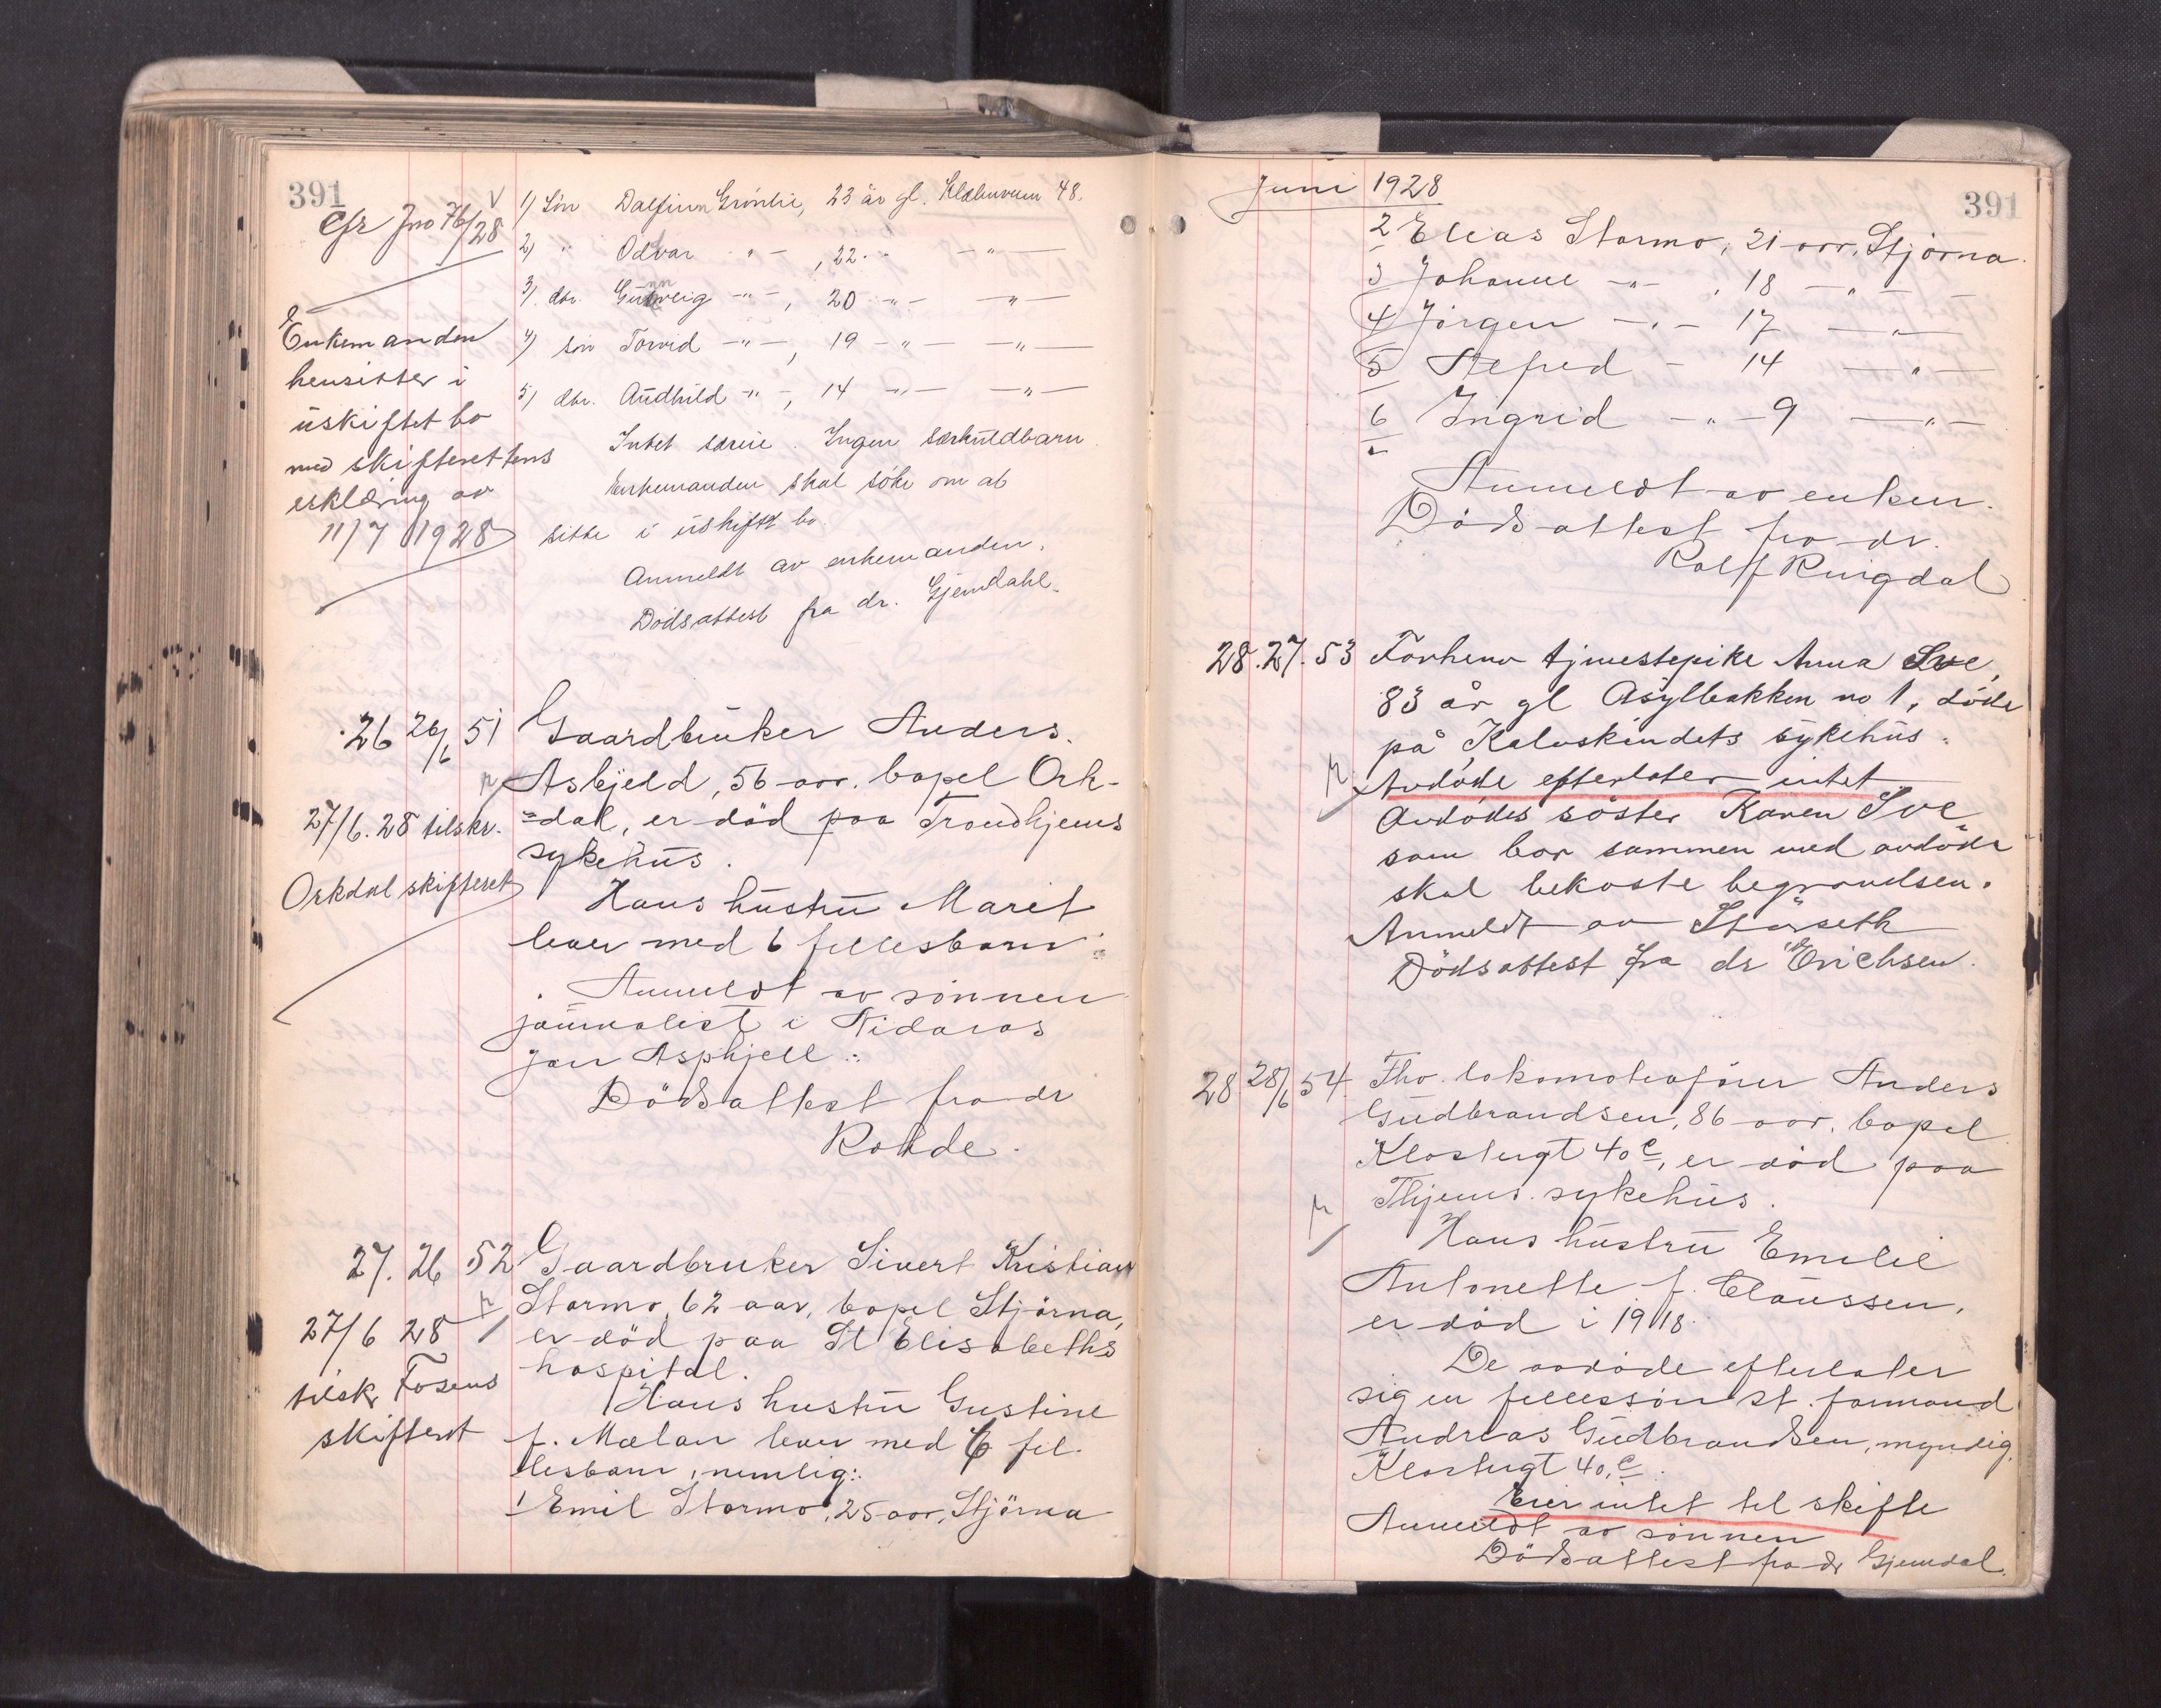 391
Cfr Jno 76/28
1) Sön Dalfinn Grönlie, 23 år gl. Klæbuveien 48.
2) " Odvar " - , 22 " - " -
3) dtr. Gunnveig - " - , 20 - " - - " -
4) sön Torvid - " - , 19 - " - - " -
5) dtr. Audhild - " - , 14 - " - - " -
Intet særeie. Ingen særkuldbarn.
Enkemanden skal söke om at
sitte i uskiftet bo.
Anmeldt av enkemanden.
Dödsattest fra dr. Gjemdahl.
Enkemanden
hensitter i
uskiftet bo
med skifterettens
erklæring av
11/7 1928
26 26/6 51 Gaardbruker Anders
Asbjeld, 56 aar. bopel Ork-
=dal, er död paa Trondhjems
sykehus.
Hans hustru Marit
lever med 6 fellesbarn.
Anmeldt av sönnen
journalist i Nidaros
Jon Asphjell.
Dödsattest fra dr
Rohde.
27/6. 28 tilskr.
Orkdal skifteret
27. 26 52 Gaardbruker Sivert Kristian
Stormo, 62 aar, bopel Stjörna,
er död paa St Elisabeths
hospital.
Hans hustru Gustine
f. Mælan lever med 6 fel-
lesbarn, nemlig:
1 Emil Stormo, 25 aar, Stjörna
27/6 28
tilskr Fosens
skifteret
Juni 1928
391
2 Elias Stormo, 21 aar, Stjörna.
3 Johanne - " - , 18 - " -
4 Jörgen - " - 17 - " -
5 Alfred - 14 - " -
6 Ingrid - " - 9 - " -
Anmeldt av enken.
Dödsattest fra dr.
Rolf Ringdal
28. 27. 53 Forhenv tjenestepike Anna Sve,
83 år gl Asylbakken no 1, döde
på Kalvskindets sykehus.
Avdöde efterlater intet
Avdödes söster Karen Sve
som bor sammen med avdöde
skal bekoste begravelsen.
Anmeldt av Störseth
Dödsattest fra dr Erichsen.
28 28/6 54 Fhv. lokomotivförer Anders
Gudbrandsen, 86 aar, bopel
Klostergt 40 c, er död paa
Thjems. sykehus.
Hans hustru Emilie
Antonette f. Claussen,
er död i 1918.
De avdöde efterlater
sig en fellessön st. formand
Andreas Gudbrandsen, myndig,
Klostergt 40. c.
Eier intet til skifte
Anmeldt av sönnen
Dödsattest fra dr Gjemdal.